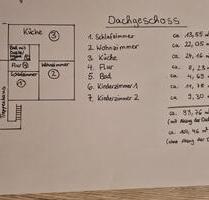 Dachgeschoss
Küche
3
Bad mit
Flur
Wohnzimmer
Schlafzimmer
1
2
Treppenhaus
1. Schlafzimmer ca. 13,55 m
2. Wohnzimmer ca. 22,05 m
3. Küche ca. 24,16 m
4. Flur ca. 8,23
5. Bad ca. 4,69
6. Kinderzimmer 1 ca. 11,78
7. Kinderzimmer 2 ca. 9,30
ca. 93,76 m
(mit Abzug der
ca. 104,46 m
(ohne Abzug der